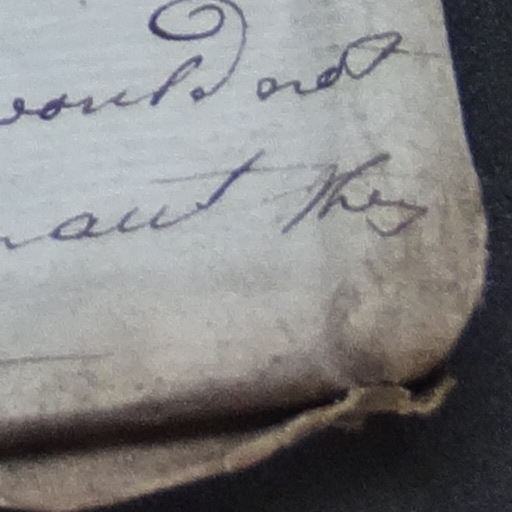 would not
want they